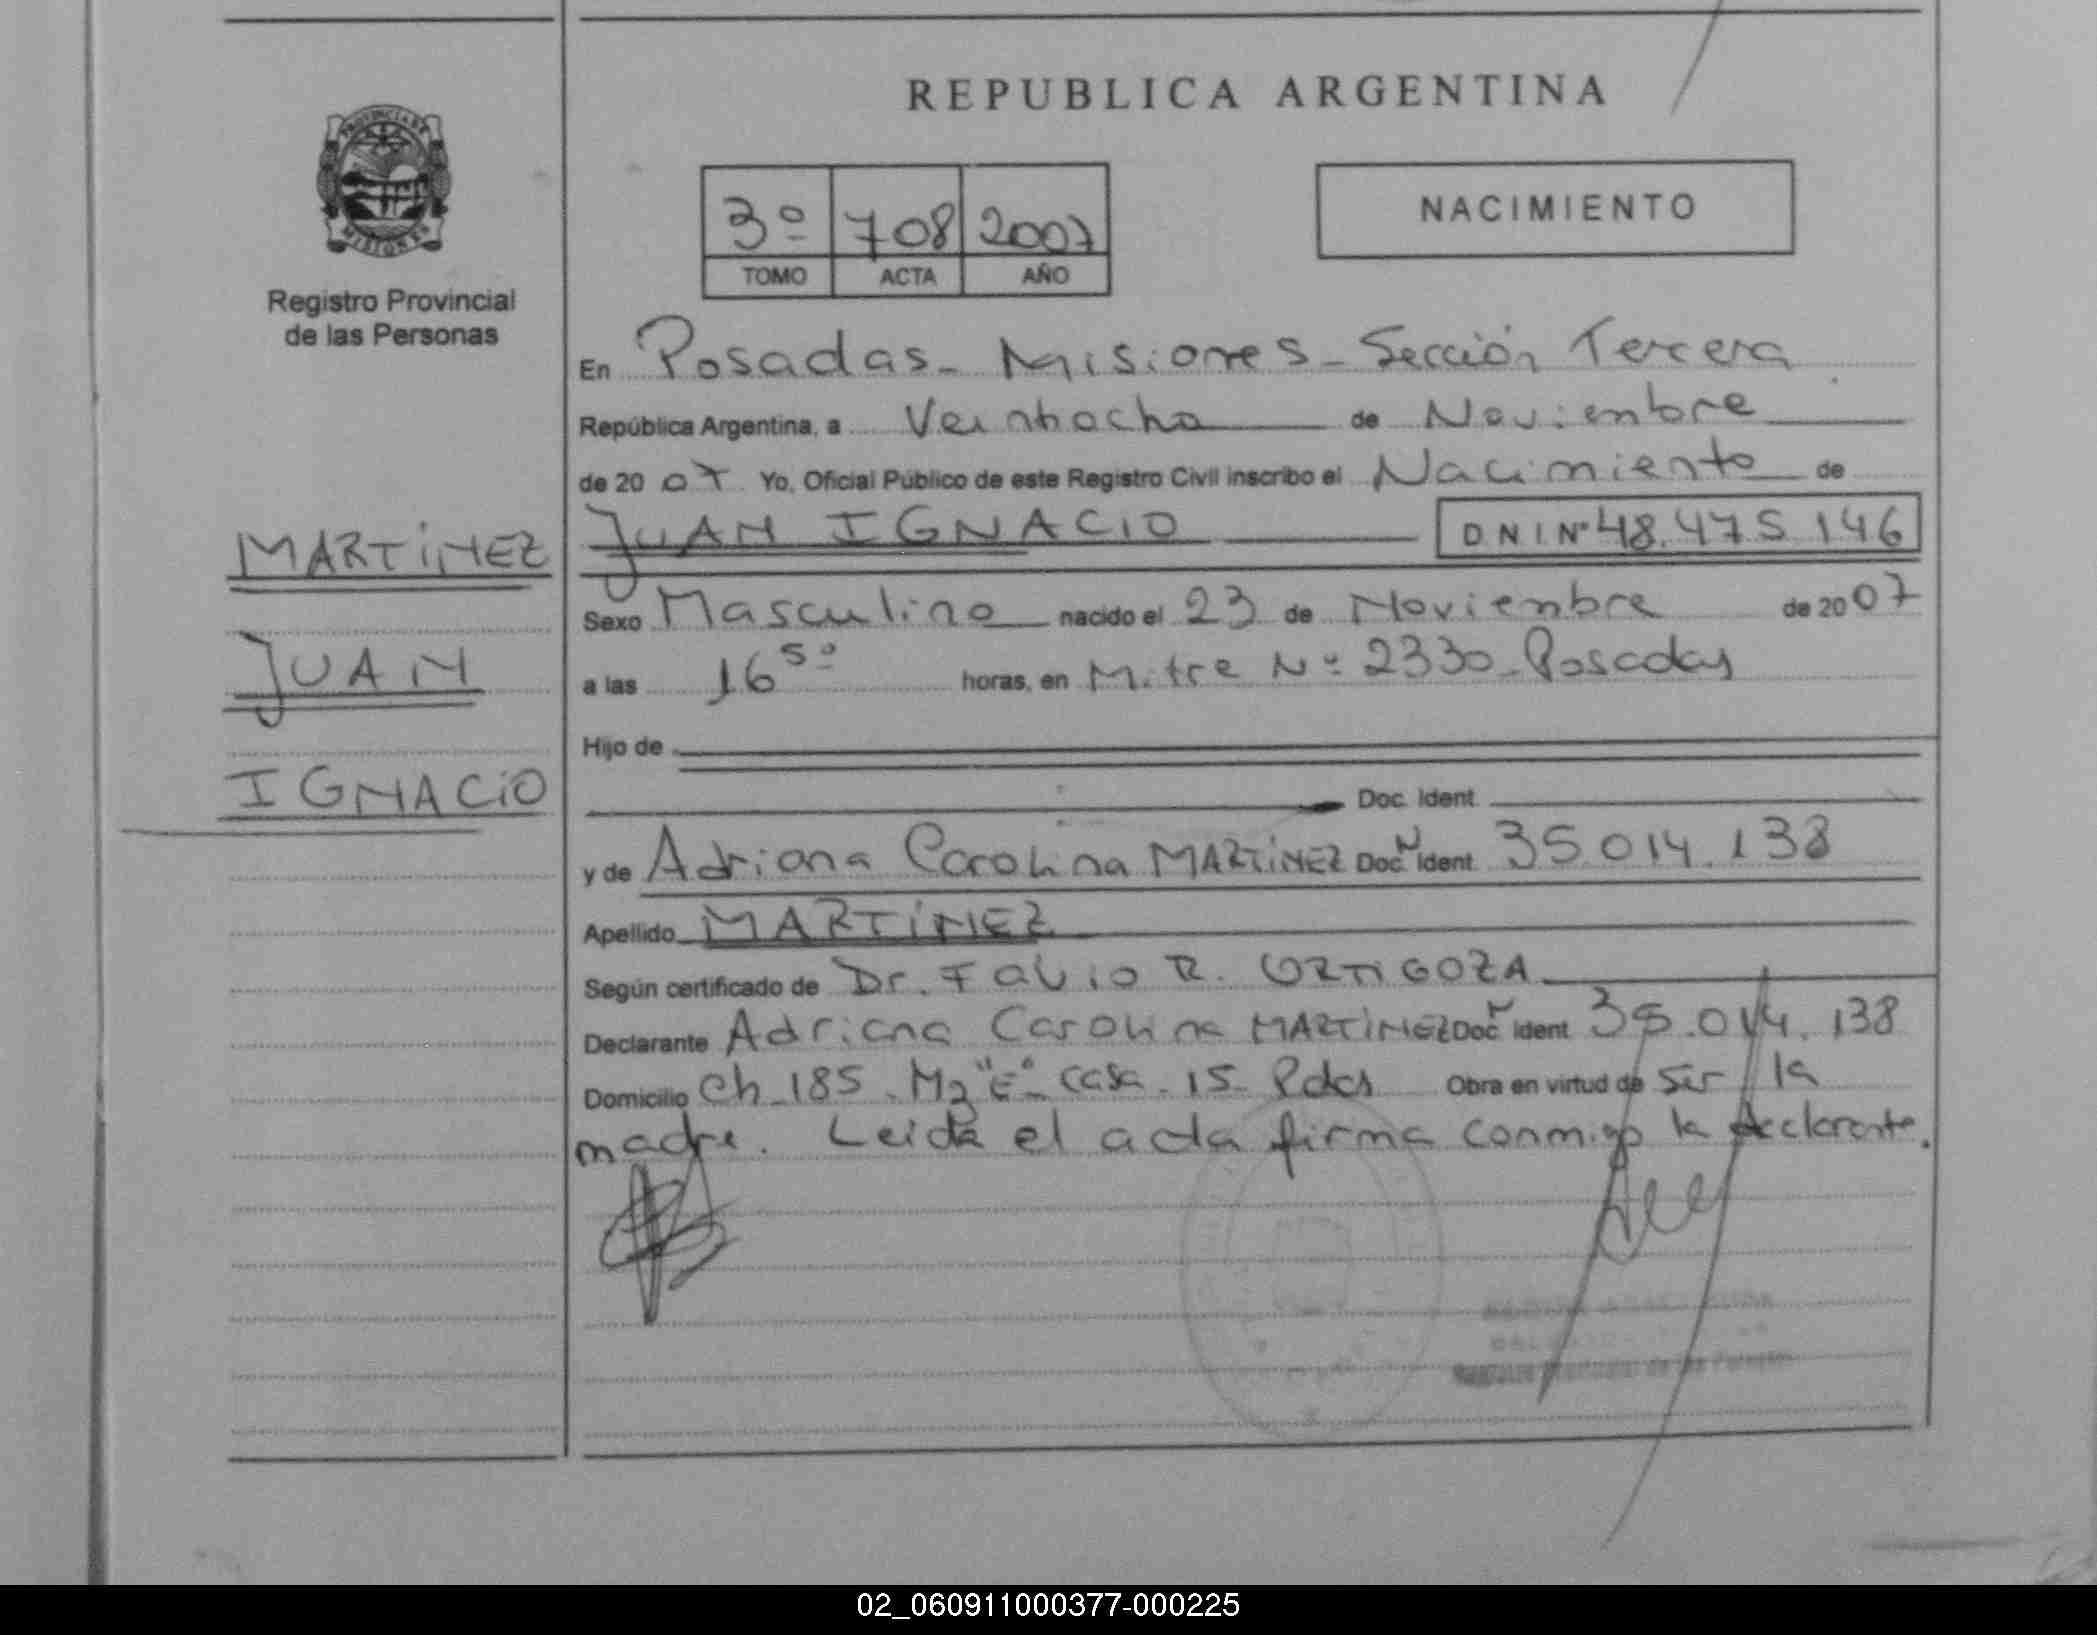 REPUBLICA ARGENTINA
PROVINCIA DE
MISIONES
Registro Provincial
de las Personas
3º 708 2007
TOMO ACTA AÑO
NACIMIENTO
En Posadas - Misiones - Sección Tercera
República Argentina, a Veintiocho de Noviembre
de 20 07 Yo, Oficial Público de este Registro Civil inscribo el Nacimiento de
MARTÍNEZ
JUAN
IGNACIO
JUAN IGNACIO D N I Nº 48.475.146
Sexo Masculino nacido el 23 de Noviembre de 20 07
a las 16 50 horas, en Mitre Nº 2330 - Posadas
Hijo de
Doc. Ident.
y de Adriana Carolina MARTÍNEZ Doc. N Ident. 35.014.138
Apellido MARTÍNEZ
Según certificado de Dr. Fabio R. ORTIGOZA
Declarante Adriana Carolina MARTÍNEZ Doc. N Ident. 35.014.138
Domicilio Ch 185 - Mz "E" - casa - 15 - Pdas Obra en virtud de ser la
madre. Leida el acta firma conmigo la declarante.
02_060911000377-000225